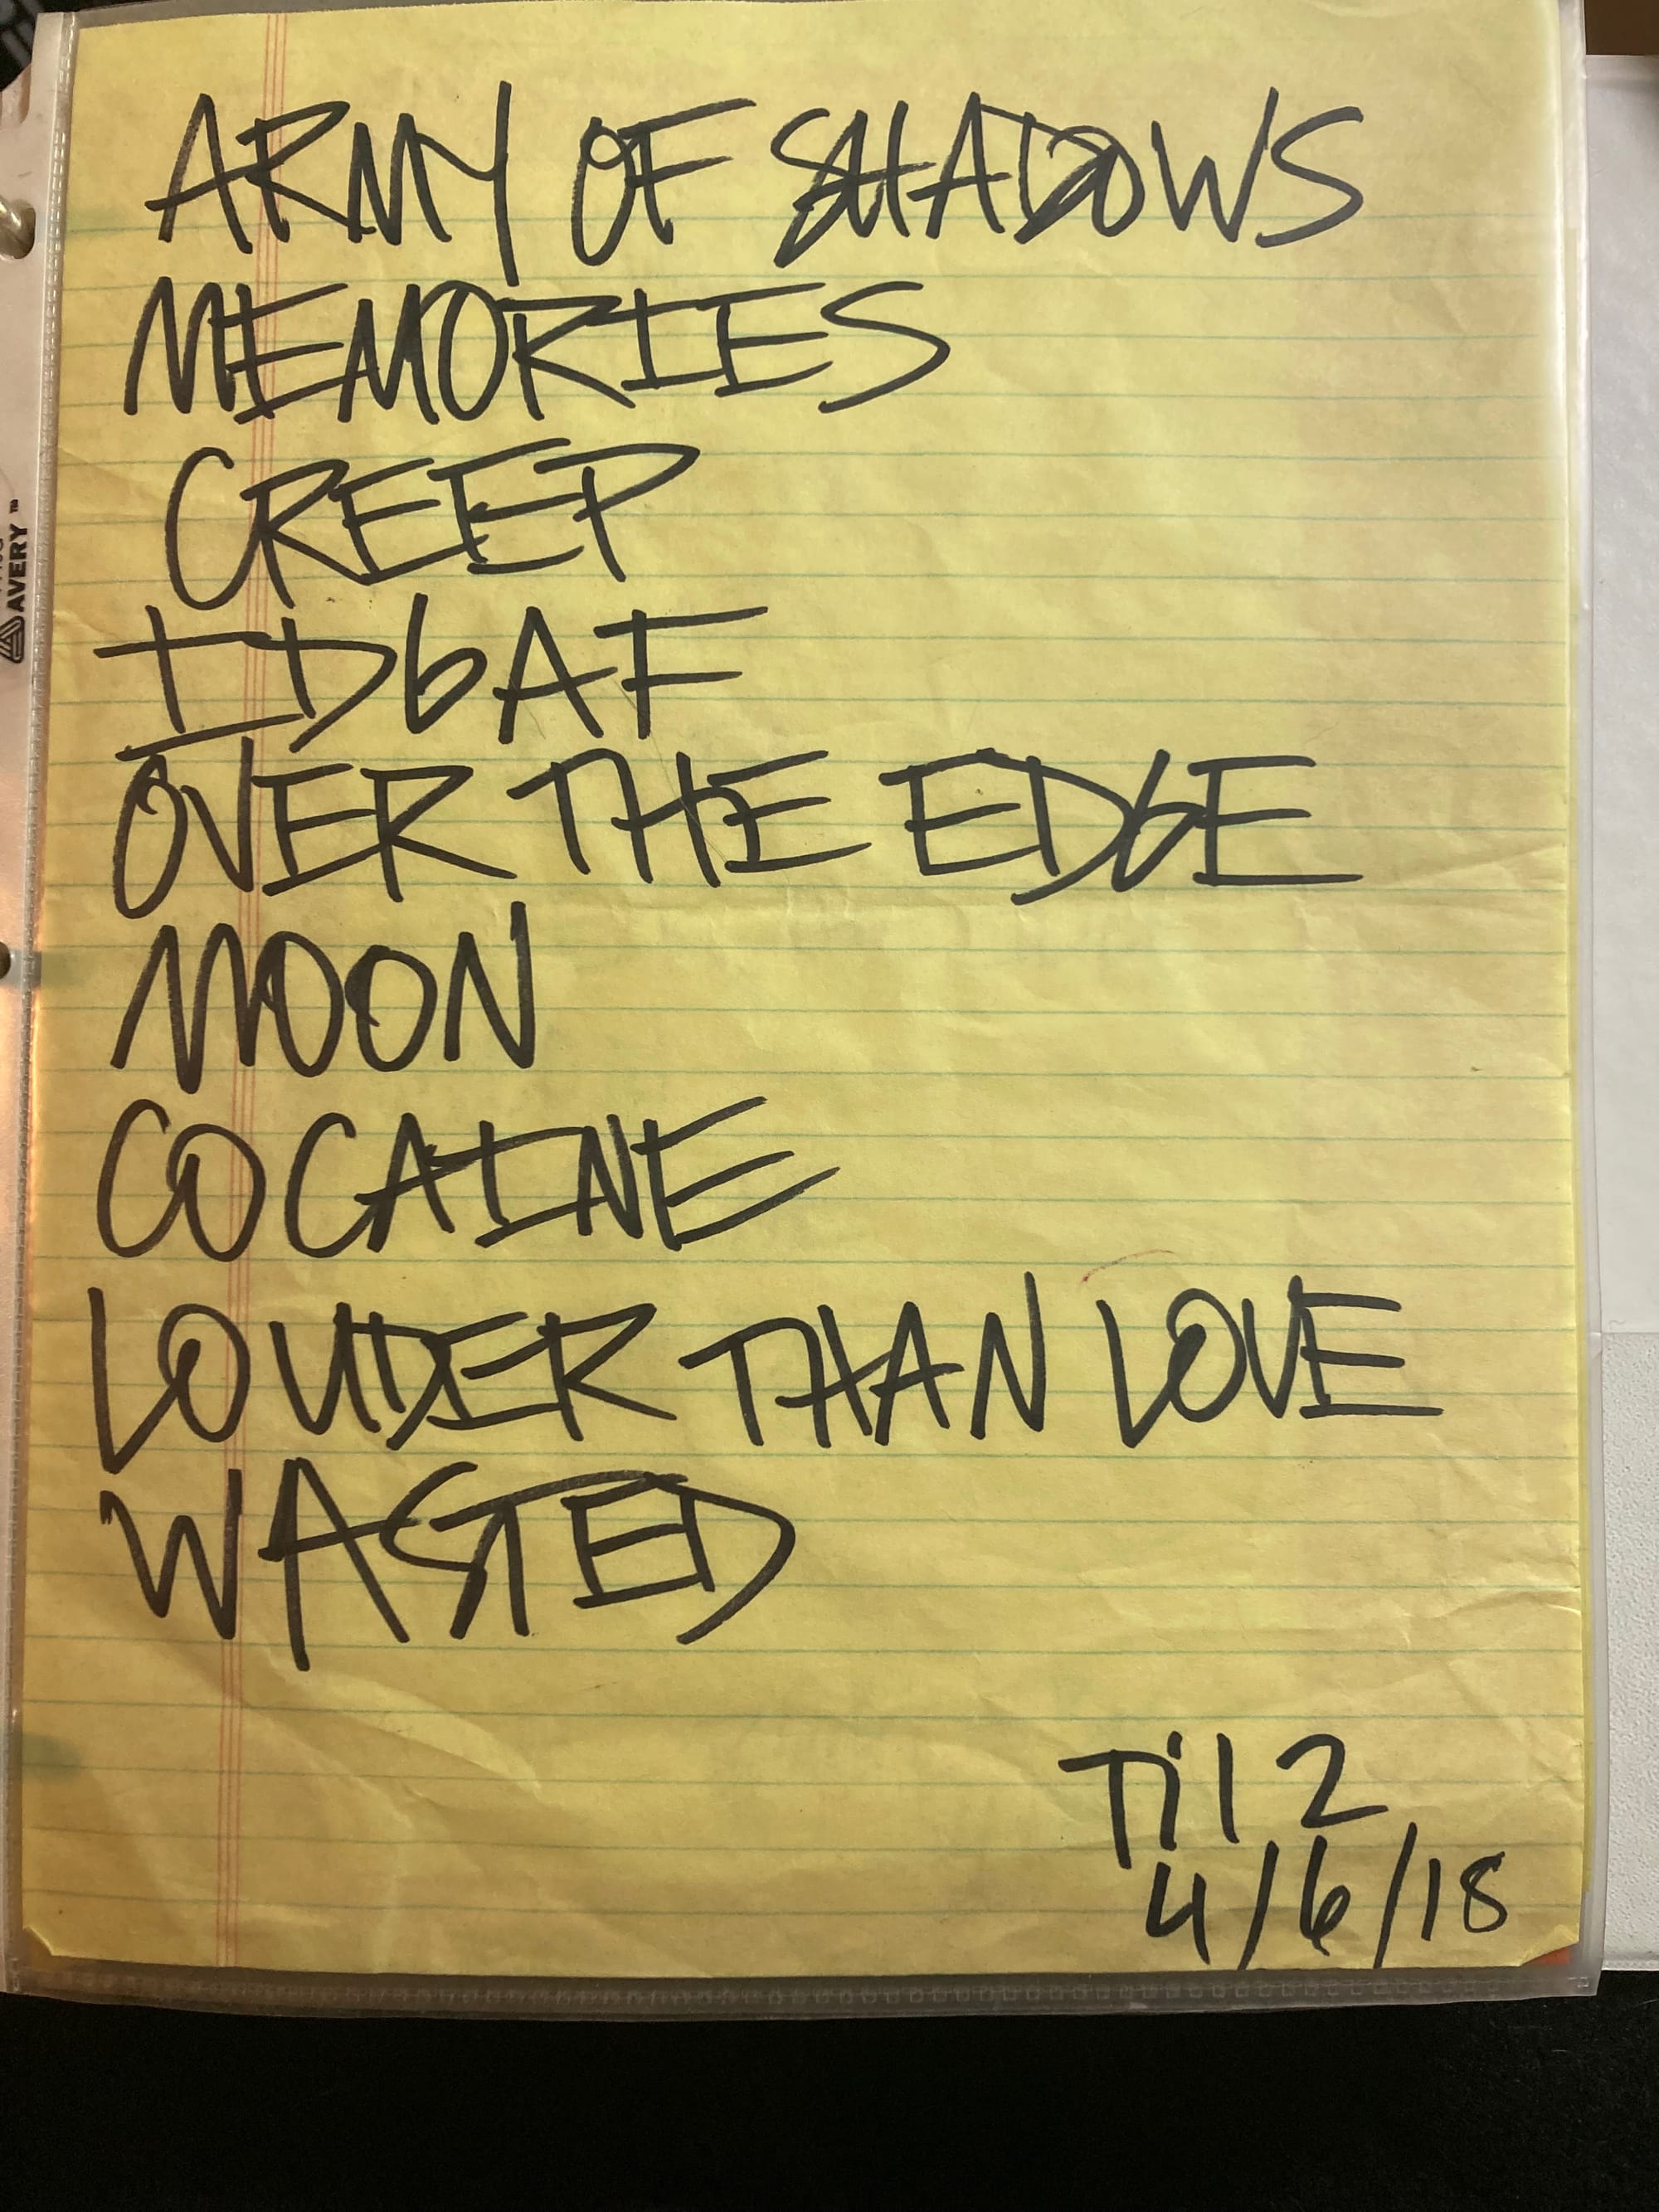 ARMY OF SHADOWS
MEMORIES
CREEP
IDGAF
OVER THE EDGE
MOON
COCAINE
LOUDER THAN LOVE
WASTED
Til 2
4/6/18
AVERY™